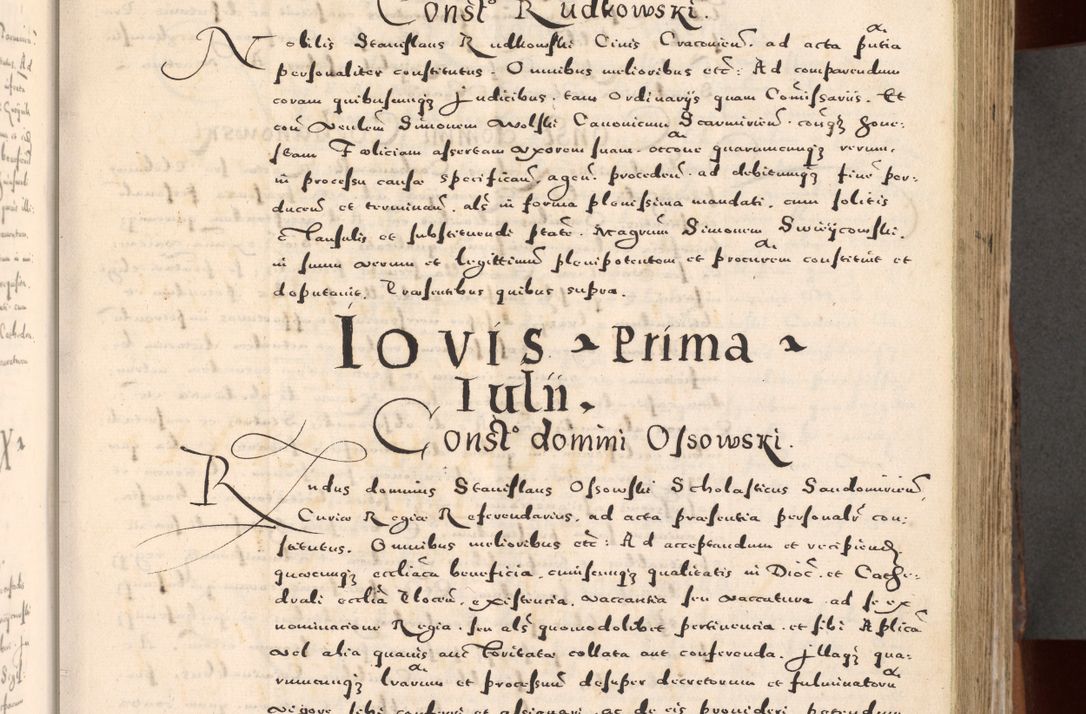 Constº Rudkowski.
Nobilis Stanislaus Rudkowski Civis Cracovien. ad acta putia
personaliter constitutus. Omnibus melioribus etc: Ad comparendum
coram quibuscunqz Judicibus. tam Ordinarijs quam Comissariis. Et
con Wolski Canonicum con qz Hone:
stam Fœliciam assertam Uxorem suam. occone quarumcunqz rerum,
in processu causæ specifican. agen. proceden. ad debitumqz finē per:
ducen et terminan. als in forma plenissima mandati. cum solitis
Clausulis et substituendi ptate. Magrum Simonem
in suum verum et legittimum plenipotentem et procurem constituit et
deputavit. Præsentibus quibus supra.
Iovis Prima
Iulii.
Constº domini Ossowski.
Rndus dominus Stanislaus Ossowski Scholasticus Sandomirien,
Curiæ Regiæ Referendarius, ad acta præsentia personalr con:
stitutus. Omnibus melioribus etc: Ad acceptandum et recipiend
quæcunqz eccliãca beneficia. cuiuscunqz qualitatis in Dioc. et Cathe:
drali ecclia Plocen. existencia. vaccantia seu vaccatura. ad se ex
nominacione Regia. seu als quomodolibet pertinencia. et sibi Aplica
vel alia quavis authoritate collata aut conferenda. Illaqz qua:
rumcunqz lrarum et processuum desuper decretorum et fulminatoru
vigore sibi conferri et assignari. ac de eis provideri petendum